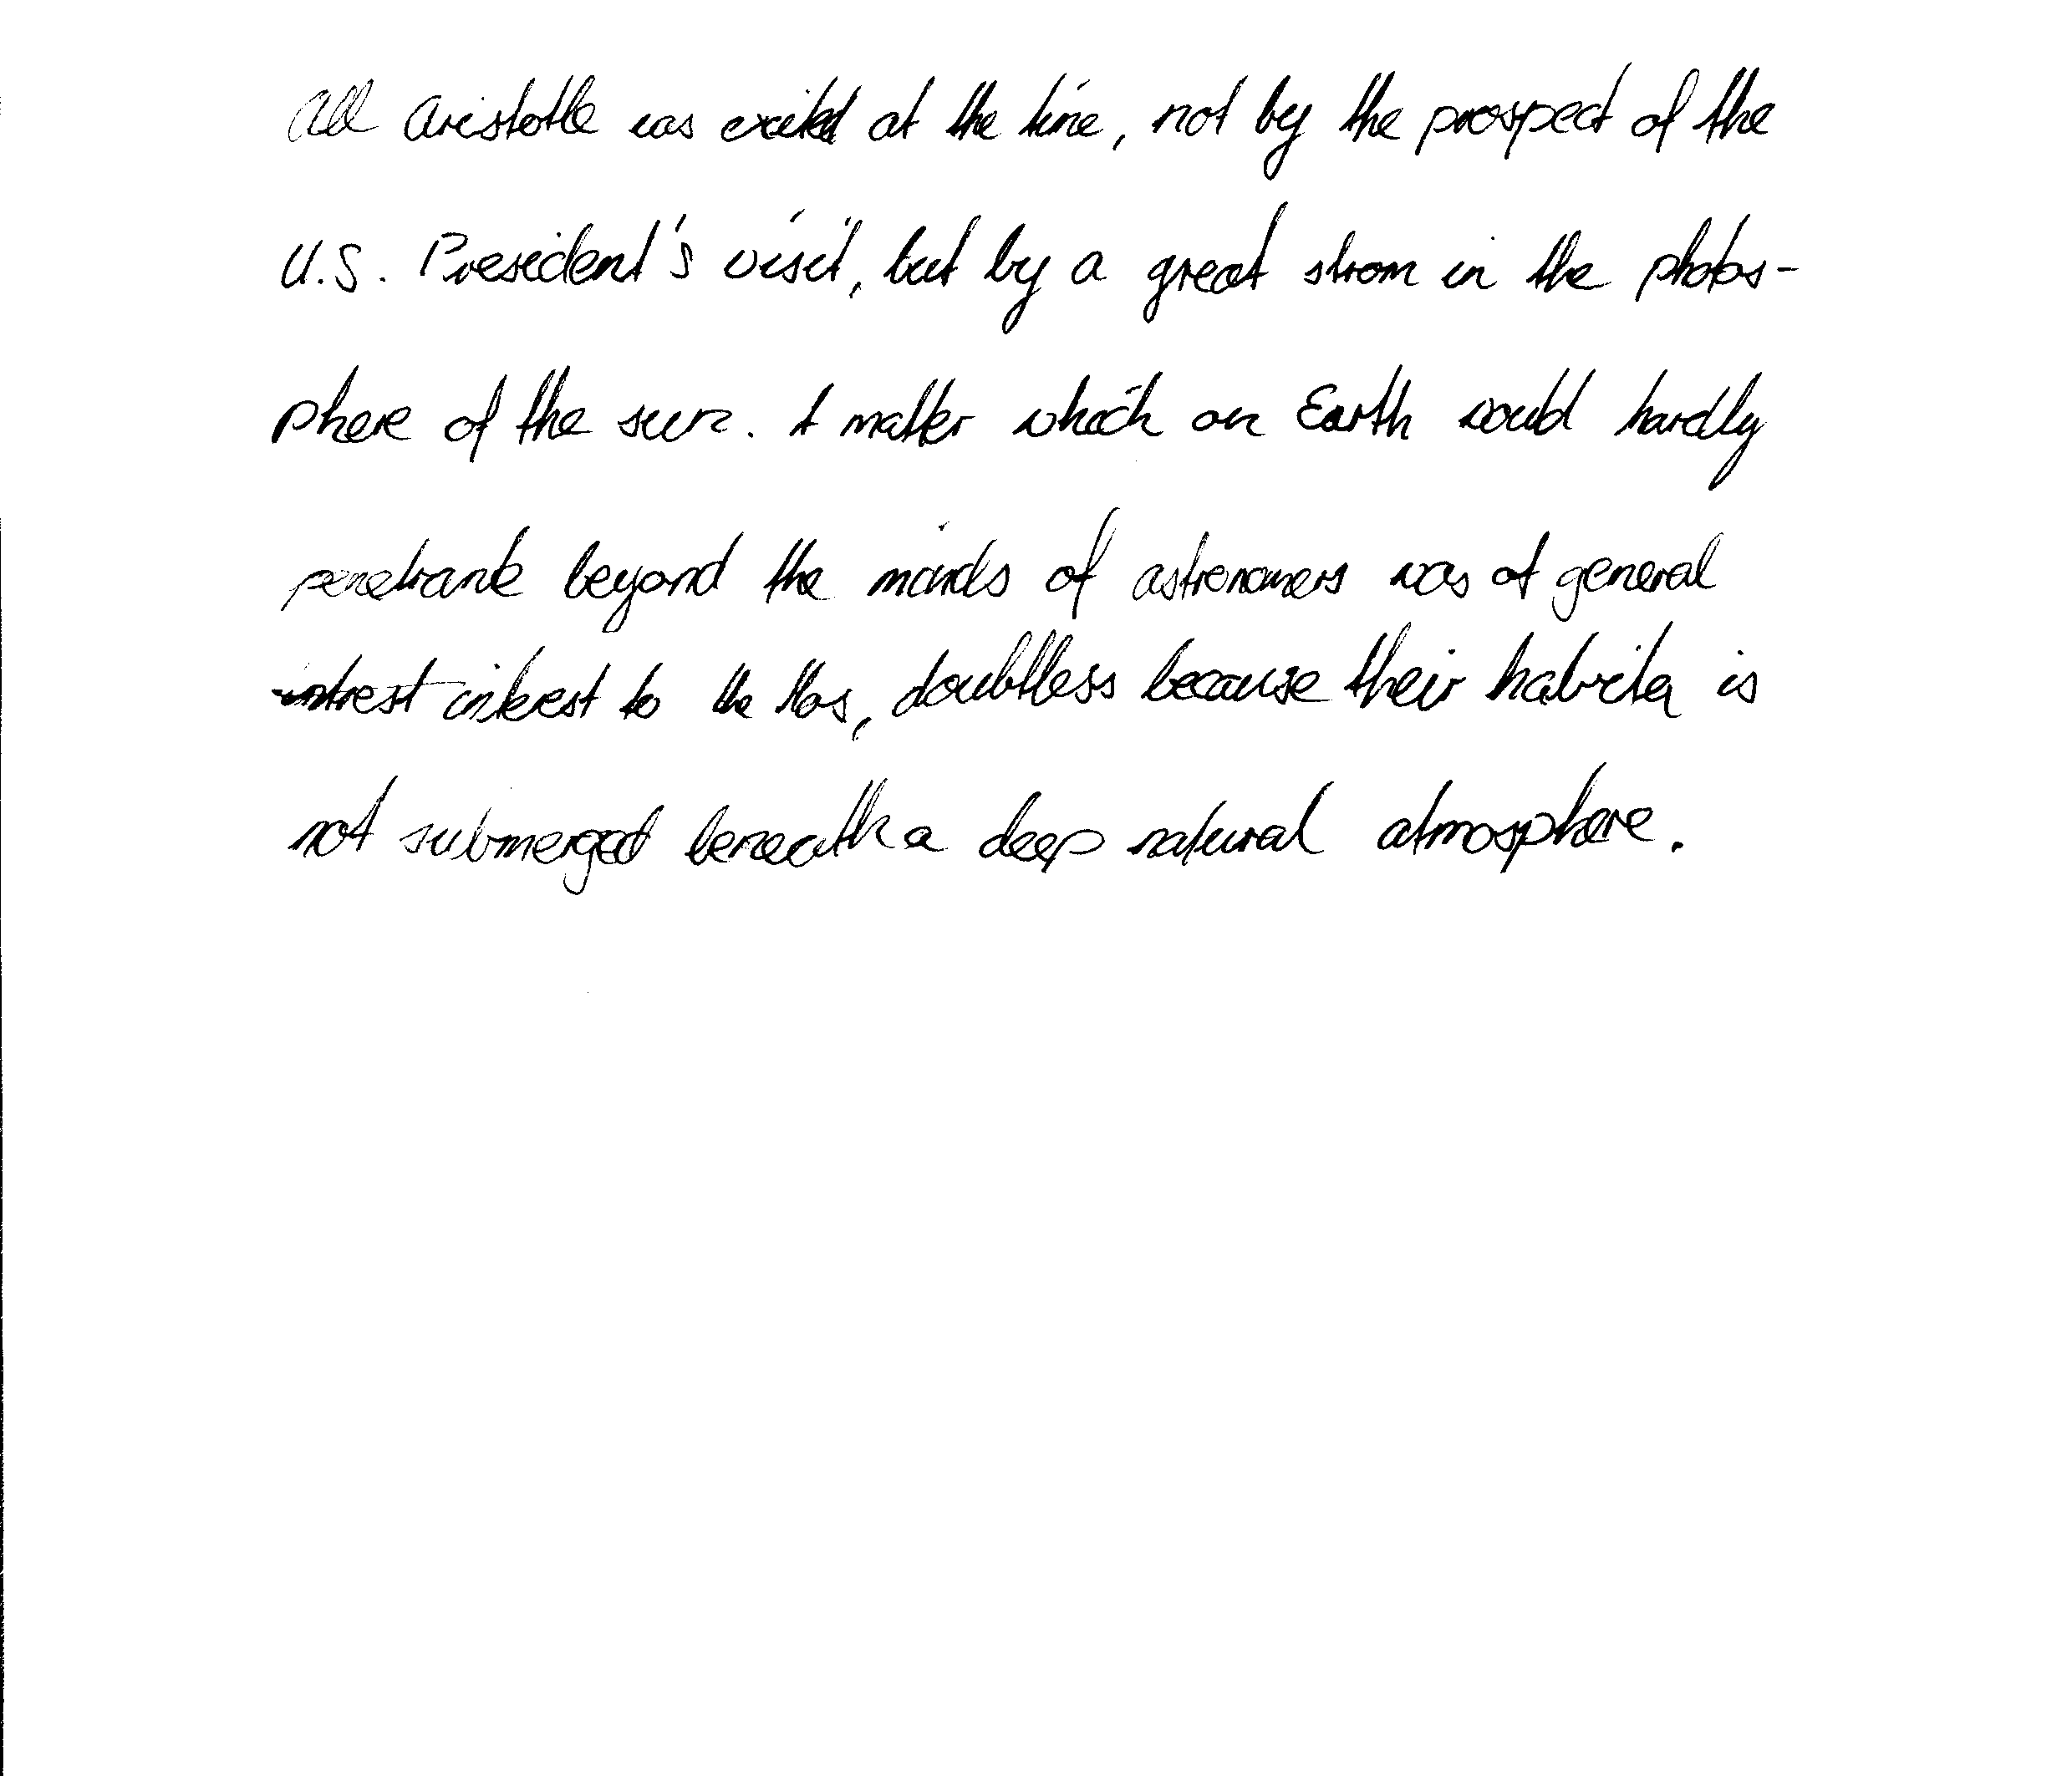 All Aristotle was exited at the time, not by the prospect of the
U.S. President's visit, but by a great strom in the photos-
phere of the sun. A matter which on Earth would hardly
penetrante beyond the minds of astronomers was of general
intrest interest to the Mos, doubtless because their habita is
not submerged beneath a deep natural atmosphere.